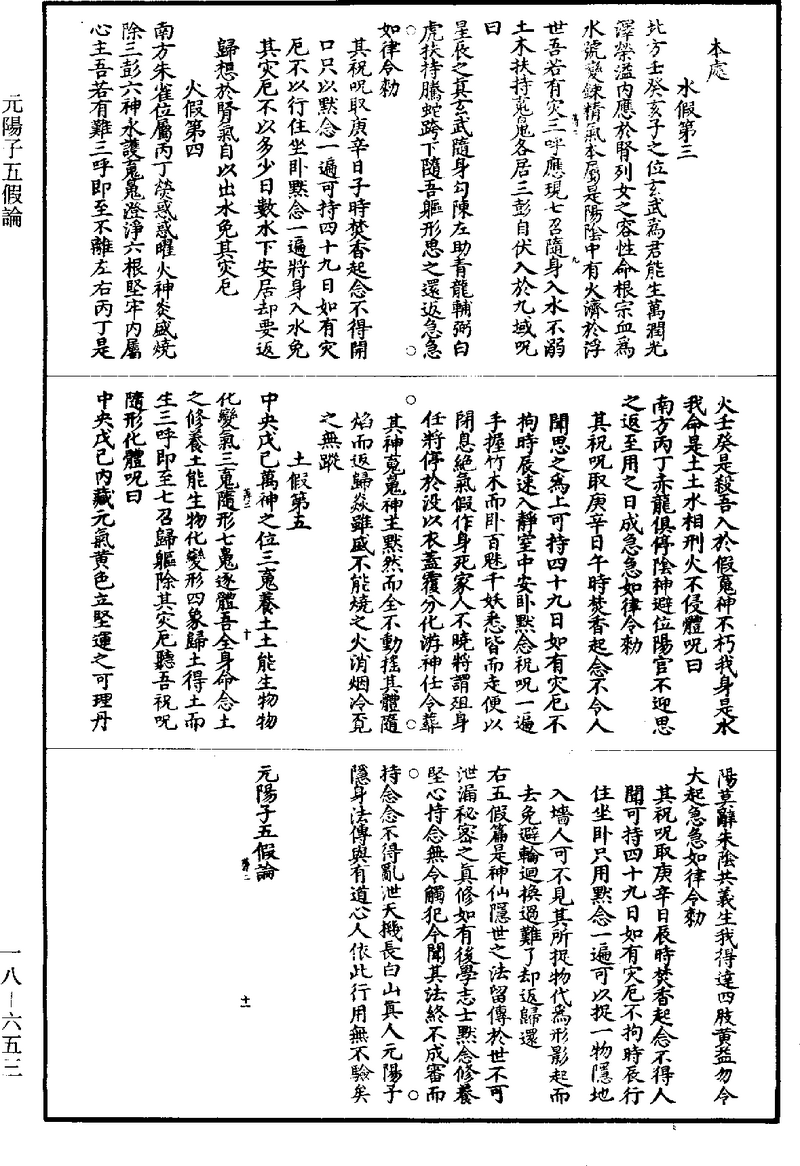 元陽子五假論
一八—六五三
本處
水假第三
北方壬癸亥子之位玄武爲君能生萬潤光
澤榮溢内應於腎列女之容性命根宗血爲
水號變鍊精氣本屬是陽陰中有火濟於浮
世吾若有灾三呼應現七召隨身入水不溺
土木扶持䰟鬼各居三彭自伏入於九域呪
曰
星辰之真玄武隨身勾陳左助青龍輔弼白
虎扶持騰蛇跨下隨吾軀形思之還返急急
如律令勑
其祝呪取庚辛日子時焚香起念不得開
口只以默念一遍可持四十九日如有灾
厄不以行住坐卧默念一遍將身入水免
其灾厄不以多少日數水下安居却要返
歸想於腎氣自以出水免其灾厄
火假第四
南方朱雀位屬丙丁熒惑惑曜火神炎盛燒
除三彭六神永護䰟鬼澄淨六根堅牢内屬
心主吾若有難三呼即至不離左右丙丁是
火壬癸是殺吾入於假䰟神不朽我身是水
我命是土土水相刑火不侵體呪曰
南方丙丁赤龍俱停陰神避位陽官不迎思
之返至用之日成急急如律令勑
其祝呪取庚辛日午時焚香起念不令人
聞思之爲上可持四十九日如有灾厄不
拘時辰速入靜室中安卧默念祝呪一遍
手握竹木而卧百魅千妖悉皆而走便以
閉息絕氣假作身死家人不曉將謂殂身
任將停於没以衣蓋覆分化游神任令葬
其神䰟鬼神主默然而全不動摇其體隨
焰而返歸焱雖盛不能燒之火消烟冷覔
之無蹤
土假第五
中央戊己萬神之位三䰟養土土能生物物
化變氣三䰟隨形七鬼逐體吾全身命念土
之修養土能生物化變形四象歸土得土而
生三呼即至七召歸軀除其灾厄聽吾祝呪
隨形化體呪曰
中央戊己内藏元氣黄色立堅運之可理丹
陽莫辭朱陰共義生我得達四肢黄益勿令
大起急急如律令勑
其祝呪取庚辛日辰時焚香起念不得人
聞可持四十九日如有灾厄不拘時辰行
住坐卧只用默念一遍可以捉一物隱地
入墻人可不見其所捉物代爲形影起而
去免避輪迴换過難了却返歸還
右五假篇是神仙隱世之法留傳於世不可
泄漏秘密之真修如有後學志士默念修養
堅心持念無令觸犯令聞其法終不成審而
持念念不得亂泄天機長白山真人元陽子
隱身法傳與有道心人依此行用無不驗矣
元陽子五假論